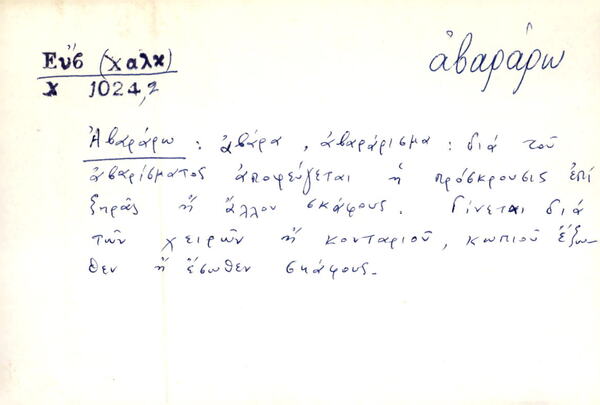 Εὐβ (Χαλκ)
ἀβαράρω
χ 1024,2
Ἀβαράρω : ἀβάρα, ἀβαράρισμα : διά τοῦ
ἀβαρίσματος ἀποφεύγεται ἡ πρόσκρουσις ἐπί
ξηρᾶς ἤ ἄλλου σκάφους. Γίνεται διά
τῶν χειρῶν ἤ κονταριοῦ, κωπιοῦ ἔξω-
θεν ἤ ἔσωθεν σκάφους.